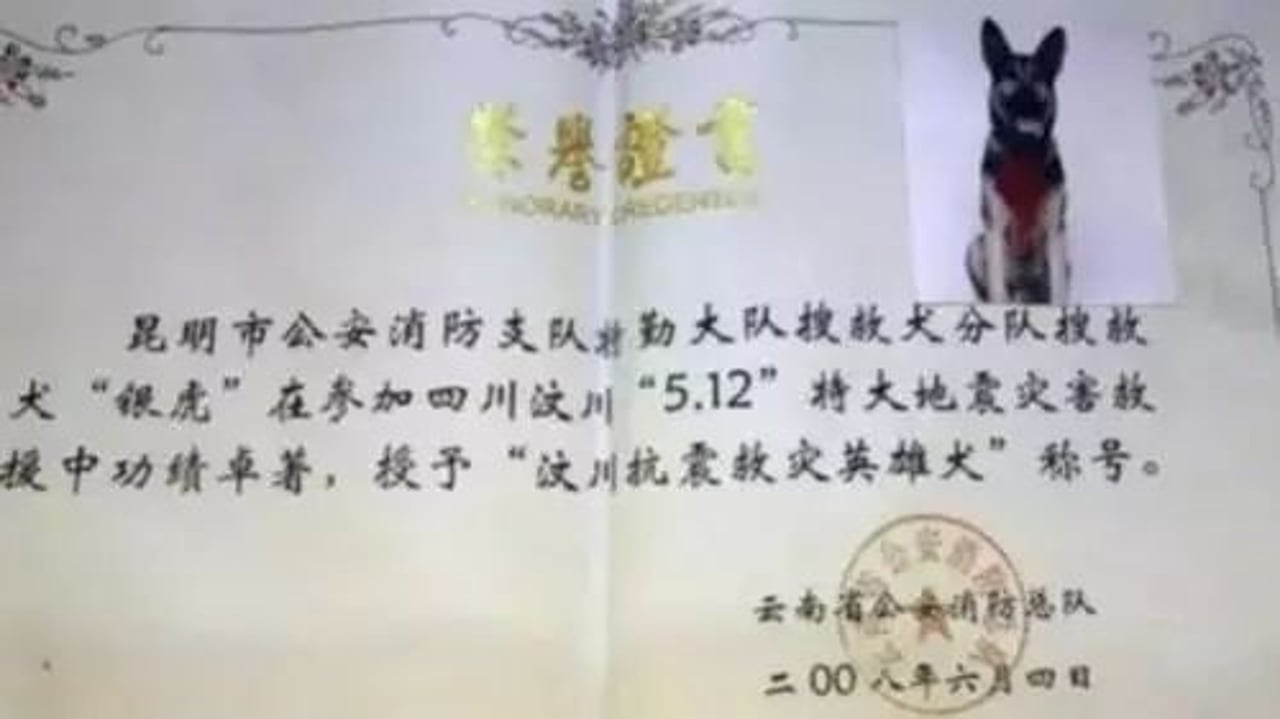 榮譽證書
HONORARY CREDENTIAL
昆明市公安消防支队特勤大队搜救犬分队搜救
犬“银虎”在参加四川汶川“5.12”特大地震灾害救
援中功绩卓著，授予“汶川抗震救灾英雄犬”称号。
公安消防
云南省公安消防总队
二00八年六月四日